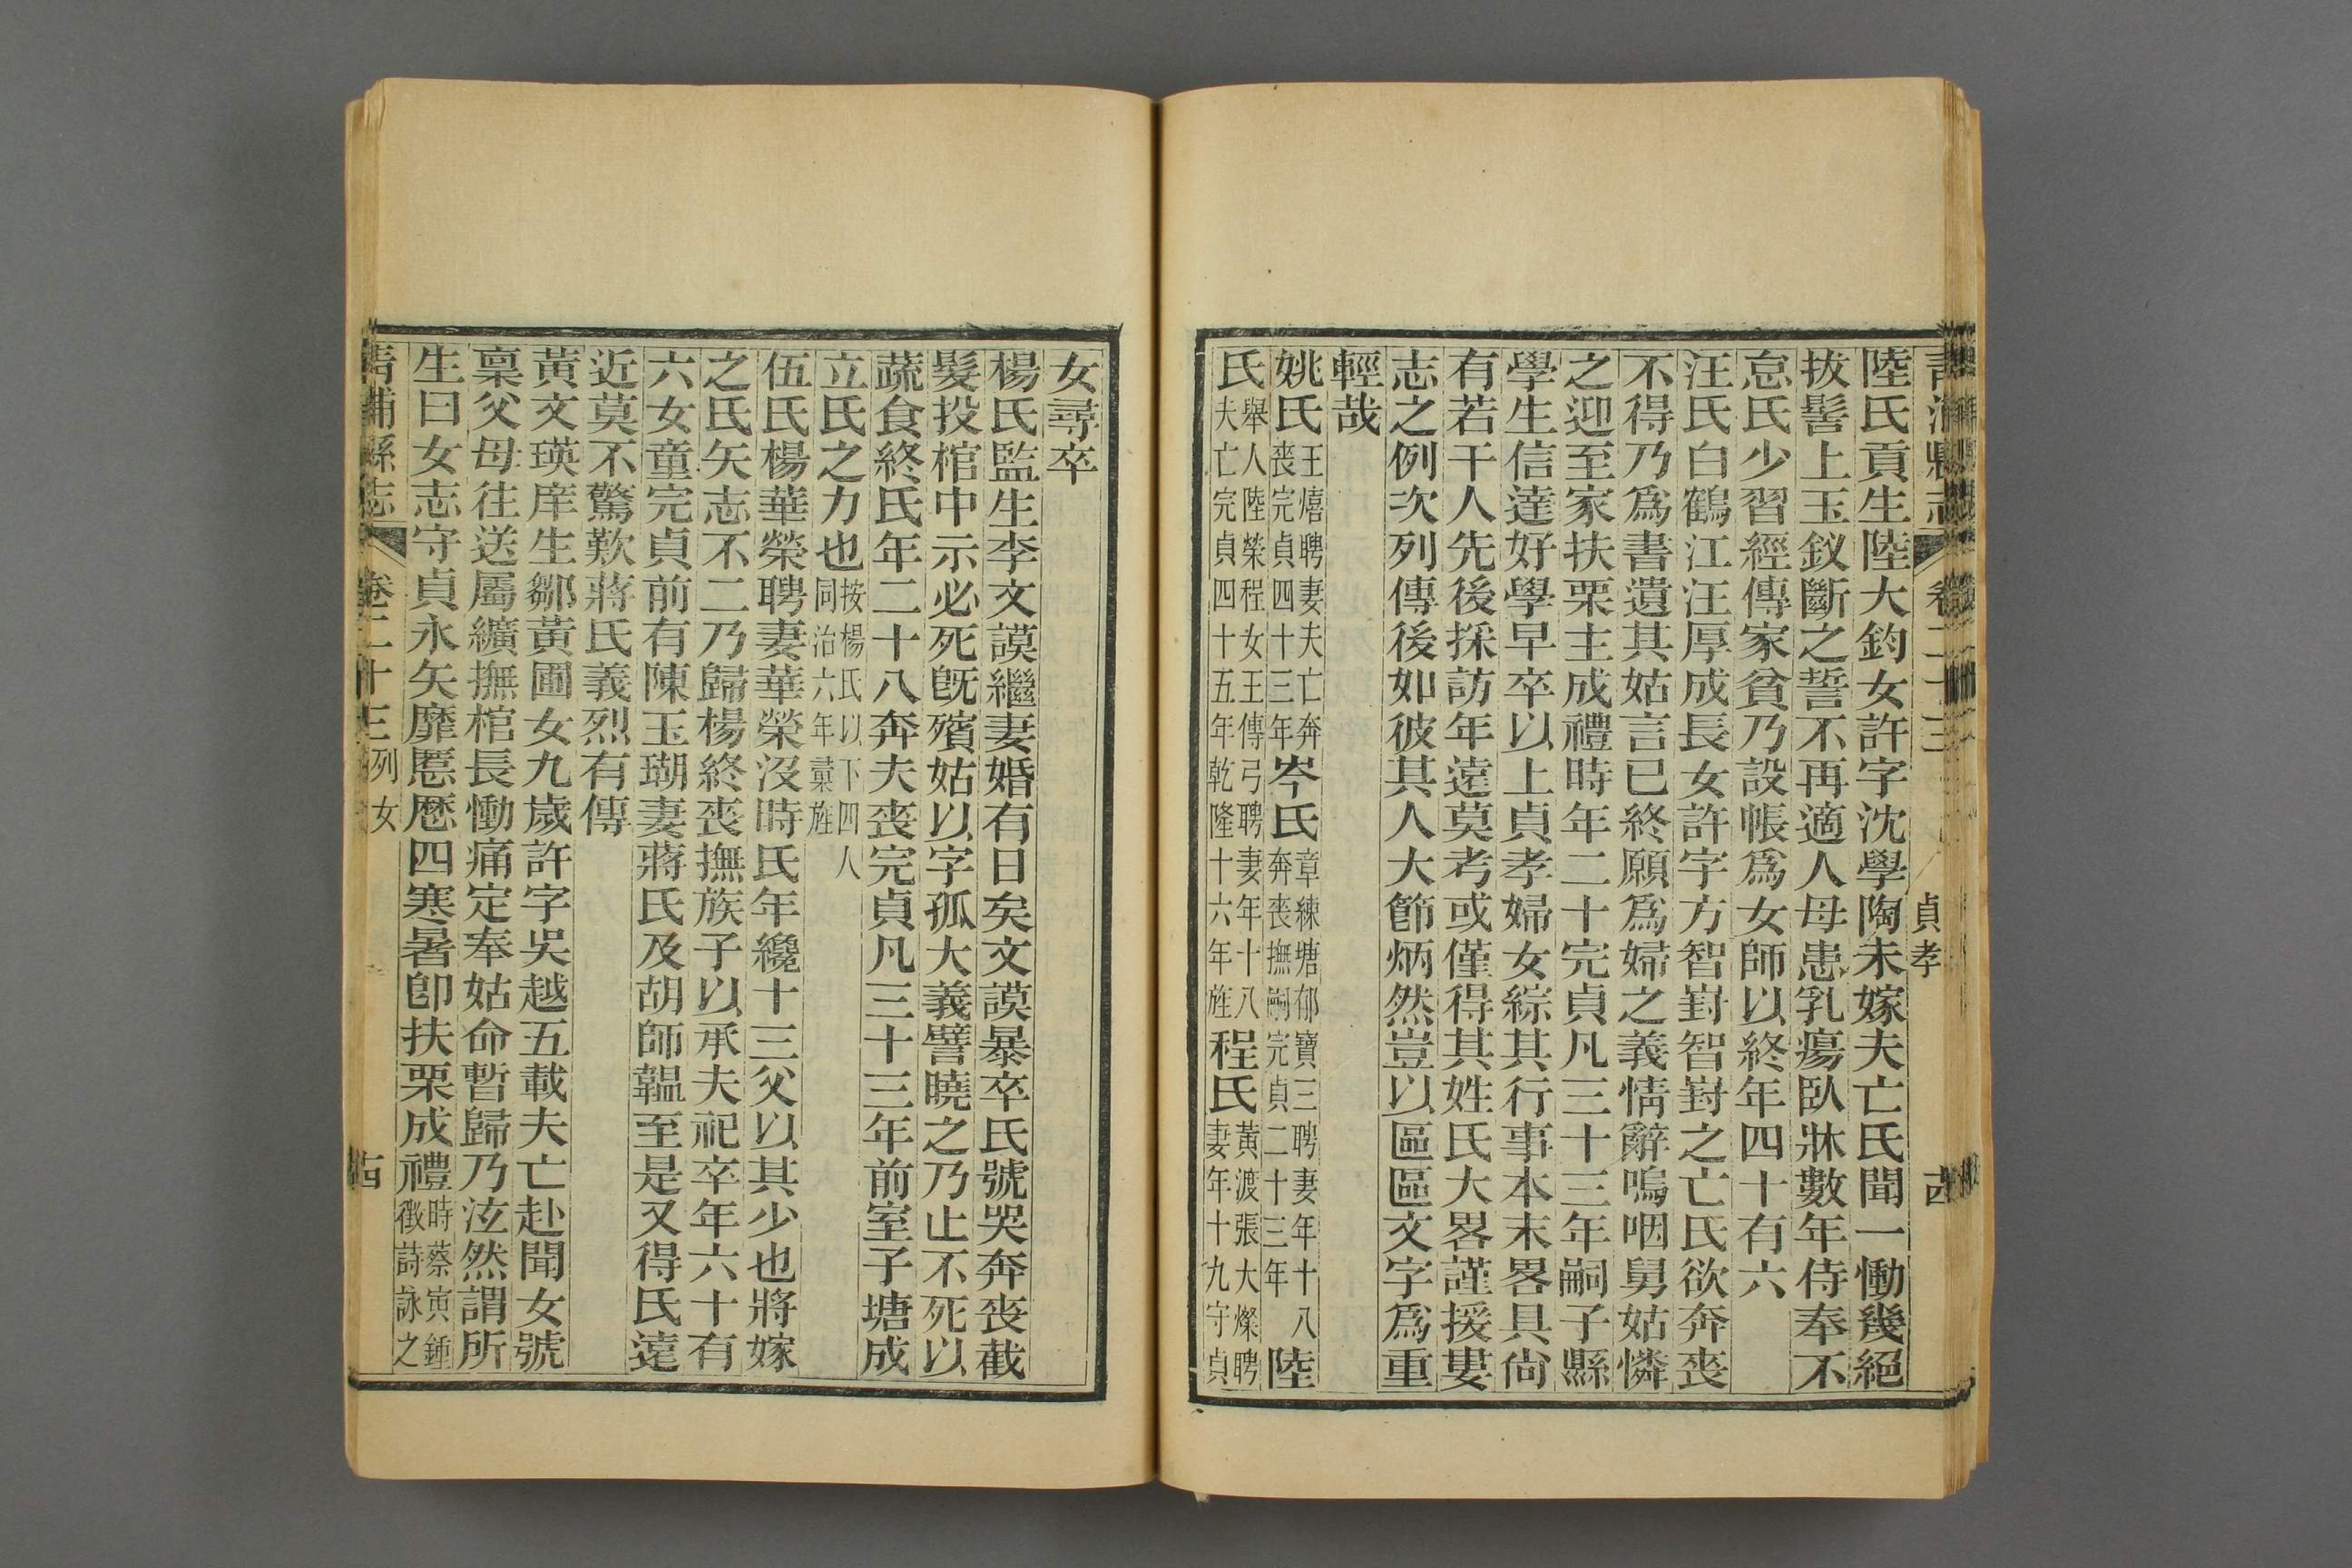 青浦縣志 卷二十三 貞孝
陸氏貢生陸大鈞女許字沈學陶未嫁夫亡氏聞一慟幾絕
拔髻上玉釵斷之誓不再適人母患乳瘍臥牀數年侍奉不
怠氏少習經傳家貧乃設帳爲女師以終年四十有六
汪氏白鶴江汪厚成長女許字方智對智對之亡氏欲奔喪
不得乃爲書遺其姑言已終願爲婦之義情辭嗚咽舅姑憐
之迎至家扶栗主成禮時年二十完貞凡三十三年嗣子縣
學生信達好學早卒以上貞孝婦女綜其行事本末畧具尙
有若干人先後採訪年遠莫考或僅得其姓氏大畧謹援婁
志之例次列傳後如彼其人大節炳然豈以區區文字爲重
輕哉
姚氏王熺聘妻夫亡奔喪完貞四十三年岑氏章練塘郁寶三聘妻年十八奔喪撫嗣完貞二十三年陸
氏舉人陸榮程女王傳弓聘妻年十八夫亡完貞四十五年乾隆十六年旌程氏黃渡張大燦聘妻年十九守貞
女尋卒
楊氏監生李文謨繼妻婚有日矣文謨暴卒氏號哭奔喪截
髮投棺中示必死旣殯姑以字孤大義譬曉之乃止不死以
蔬食終氏年二十八奔夫喪完貞凡三十三年前室子塘成
立氏之力也按楊氏以下四人同治六年彙旌
伍氏楊華榮聘妻華榮沒時氏年纔十三父以其少也將嫁
之氏矢志不二乃歸楊終喪撫族子以承夫祀卒年六十有
六女童完貞前有陳玉瑚妻蔣氏及胡師韞至是又得氏遠
近莫不驚歎蔣氏義烈有傳
黃文瑛庠生鄒黃圃女九歲許字吳越五載夫亡赴聞女號
稟父母往送屬纊撫棺長慟痛定奉姑命暫歸乃泫然謂所
生曰女志守貞永矢靡慝厯四寒暑卽扶栗成禮時蔡寅鍾徵詩詠之
青浦縣志 卷二十三列女